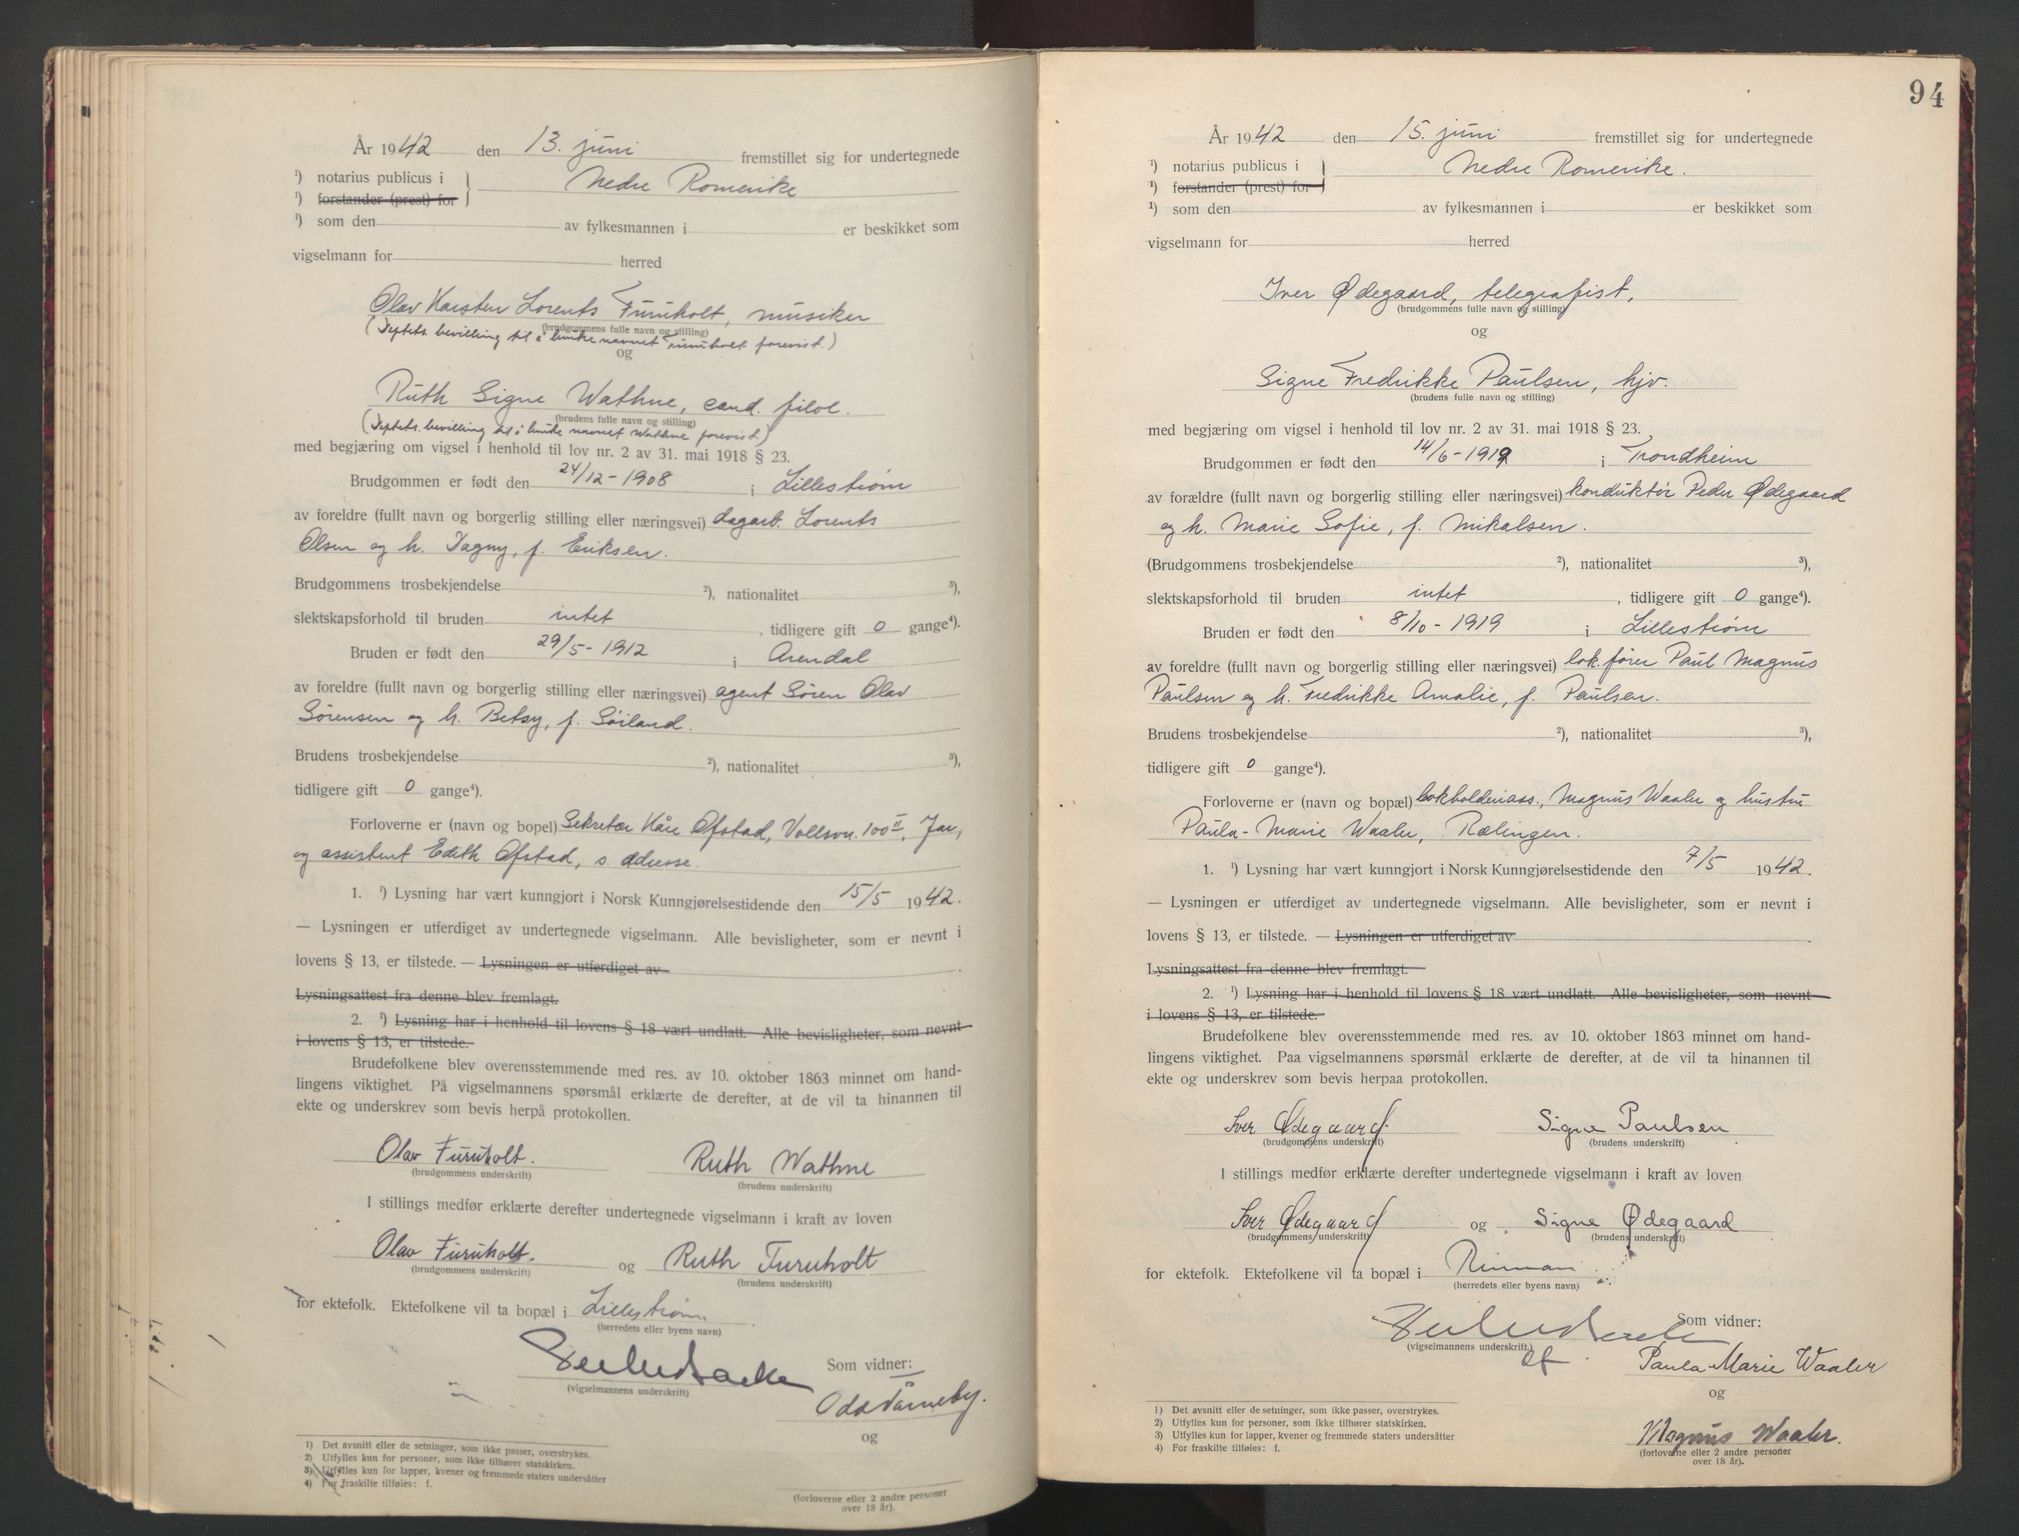 År 1942 den 13. juni fremstillet sig for undertegnede
¹) notarius publicus i Nedre Romerike
¹) forstander (prest) for
¹) som den av fylkesmannen i er beskikket som
vigselmann for herred
Olav Karsten Lorents Furuholt, musiker
(brudgommens fulle navn og stilling)
(Jeptets. bevilling til å bruke navnet Furuholt forevist.)
og
Ruth Signe Wathne, cand. filol.
(brudens fulle navn og stilling)
(Jeptets. bevilling til å bruke navnet Wathne forevist)
med begjæring om vigsel i henhold til lov nr. 2 av 31. mai 1918 § 23.
Brudgommen er født den 24/12-1908 i Lillestrøm
av foreldre (fullt navn og borgerlig stilling eller næringsvei) dagarb. Lorents
Olsen og h. Dagny, f. Eriksen.
Brudgommens trosbekjendelse ²), nationalitet ³),
slektskapsforhold til bruden intet, tidligere gift 0 gange⁴).
Bruden er født den 29/5-1912 i Arendal
av foreldre (fullt navn og borgerlig stilling eller næringsvei) agent Søren Olav
Sørensen og h. Betsy, f. Søiland.
Brudens trosbekjendelse ²), nationalitet ³),
tidligere gift 0 gange⁴).
Forloverne er (navn og bopel) Sekretær Kåre Ofstad, Vollsvn. 100 II, Jar,
og assistent Edith Ofstad, s. adresse.
1. ¹) Lysning har vært kunngjort i Norsk Kunngjørelsestidende den 15/5 1942.
— Lysningen er utferdiget av undertegnede vigselmann. Alle bevisligheter, som er nevnt i
lovens § 13, er tilstede. — Lysningen er utferdiget av
Lysningsattest fra denne blev fremlagt.
2. ¹) Lysning har i henhold til lovens § 18 vært undlatt. Alle bevisligheter, som nevnt
i lovens § 13, er tilstede.
Brudefolkene blev overensstemmende med res. av 10. oktober 1863 minnet om hand-
lingens viktighet. På vigselmannens spørsmål erklærte de derefter, at de vil ta hinannen til
ekte og underskrev som bevis herpå protokollen.
Olav Furuholt. Ruth Wathne
(brudgommens underskrift) (brudens underskrift)
I stillings medfør erklærte derefter undertegnede vigselmann i kraft av loven
Olav Furuholt. og Ruth Furuholt
(brudgommens underskrift) (brudens underskrift)
for ektefolk. Ektefolkene vil ta bopæl i Lillestrøm.
(herredets eller byens navn)
Som vidner:
(vigselmannens underskrift)
Odd Tårneby.
og
1) Det avsnitt eller de setninger, som ikke passer, overstrykes.
2) Utfylles kun for personer, som ikke tilhører statskirken.
3) Utfylles kun for lapper, kvener og fremmede staters undersåtter
4) For fraskilte tilføies: f.
(forloverne eller 2 andre personer
over 18 år).
94
År 1942 den 15. juni fremstillet sig for undertegnede
¹) notarius publicus i Nedre Romerike.
¹) forstander (prest) for
¹) som den av fylkesmannen i er beskikket som
vigselmann for herred
Iver Ødegaard, telegrafist,
(brudgommens fulle navn og stilling)
og
Signe Fredrikke Paulsen, hjv.
(brudens fulle navn og stilling)
med begjæring om vigsel i henhold til lov nr. 2 av 31. mai 1918 § 23.
Brudgommen er født den 14/6-1919 i Trondheim
av forældre (fullt navn og borgerlig stilling eller næringsvei) konduktør Peder Ødegaard
og h. Marie Sofie, f. Mikalsen.
(Brudgommens trosbekjendelse ²), nationalitet ³),
slektskapsforhold til bruden intet, tidligere gift 0 gange⁴).
Bruden er født den 8/10-1919 i Lillestrøm
av foreldre (fullt navn og borgerlig stilling eller næringsvei) lok.fører Paul Magnus
Paulsen og h. Fredrikke Amalie, f. Paulsen.
Brudens trosbekjendelse ²), nationalitet ³),
tidligere gift 0 gange⁴).
Forloverne er (navn og bopæl) bokholderass., Magnus Waaler og hustru
Paula-Marie Waaler, Rælingen.
1. ¹) Lysning har vært kunngjort i Norsk Kunngjørelsestidende den 7/5 1942.
— Lysningen er utferdiget av undertegnede vigselmann. Alle bevisligheter, som er nevnt i
lovens § 13, er tilstede. — Lysningen er utferdiget av
Lysningsattest fra denne blev fremlagt.
2. ¹) Lysning har i henhold til lovens § 18 vært undlatt. Alle bevisligheter, som nevnt
i lovens § 13, er tilstede.
Brudefolkene blev overensstemmende med res. av 10. oktober 1863 minnet om hand-
lingens viktighet. Paa vigselmannens spørsmål erklærte de derefter, at de vil ta hinannen til
ekte og underskrev som bevis herpaa protokollen.
Iver Ødegaard. Signe Paulsen
(brudgommens underskrift) (brudens underskrift)
I stillings medfør erklærte derefter undertegnede vigselmann i kraft av loven
Iver Ødegaard og Signe Ødegaard
(brudgommens underskrift) (brudens underskrift)
for ektefolk. Ektefolkene vil ta bopæl i
(herredets eller byens navn)
Som vidner:
(vigselmannens underskrift)
Paula-Marie Waaler
og
Magnus Waaler.
(forloverne eller 2 andre personer
over 18 år).
1) Det avsnitt eller de setninger, som ikke passer, overstrykes.
2) Utfylles kun for personer, som ikke tilhører statskirken.
3) Utfylles kun for lapper, kvener og fremmede staters undersåtter
4) For fraskilte tilføies: f.